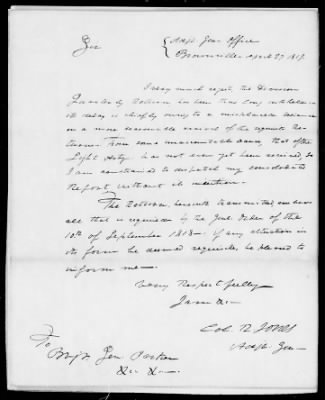 Sir
Adjt. Gen. Office
Brownville April 27 1819.
I very much regret, the Division
Quarterly Return has been thus long withheld
its delay is chiefly owing to a
in a more seasonable arrival of the requisite Re-
turns. From some unaccountable cause, that of the
Light Arty. has not ever yet been received, &
I am constrained to dispatch my consolidated
Report, without its insertion.
The Return, herewith transmitted, em-
all that is required by the Genl. Order of the
10th of September 1818 — if any alteration in
its form be deemed requisite, be pleased to
inform me —
Very Respectfully
I am &c. —
Col. R. Jones
Adjt. Gen
To
Brig. Gen. Parker
&c. &c. —